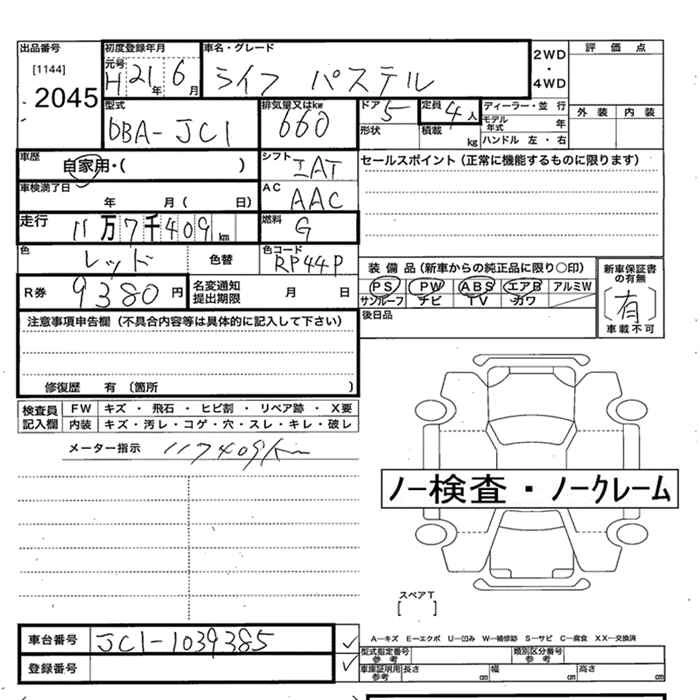 出品番号
[1144]
2045
初度登録年月
元号
H 21年 6月
車名・グレード
ライフ パステル
2WD
・
4WD
評価点
外装 内装
型式
DBA-JC1
排気量又はkw
660
ドア 5
定員 4人
形状
積載 kg
ディーラー・並行
モデル年式 年
ハンドル 左・右
車歴
自家用・( )
シフト
IAT
セールスポイント(正常に機能するものに限ります)
車検満了日
年 月( 日)
AC
AAC
走行
11万7千409km
燃料
G
色
レッド
色替
色コード
RP44P
装備品(新車からの純正品に限り○印)
PS PW ABS エアB アルミW
サンルーフ ナビ TV カワ
新車保証書の有無
(有)
車載不可
R券
9380円
名変通知
提出期限
月 日
後日品
注意事項申告欄(不具合内容等は具体的に記入して下さい)
修復歴 有(箇所 )
検査員記入欄
FW キズ・飛石・ヒビ割・リペア跡・X要
内装 キズ・汚レ・コゲ・穴・スレ・キレ・破レ
メーター指示 117409km
ノー検査・ノークレーム
スペアT
[ ]
車台番号
JC1-1039385
登録番号
A―キズ E―エクボ U―凹み W―補修跡 S―サビ C―腐食 XX―交換済
型式指定番号
参考
類別区分番号
参考
車庫証明用
参考
長さ cm 幅 cm 高さ cm